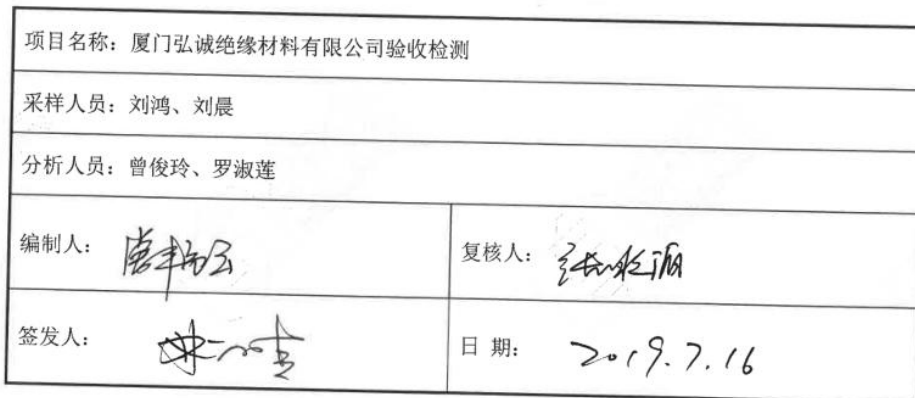 项目名称：厦门弘诚绝缘材料有限公司验收检测
采样人员：刘鸿、刘晨
分析人员：曾俊玲、罗淑莲
编制人：
复核人：
签发人：
日 期：2019.7.16